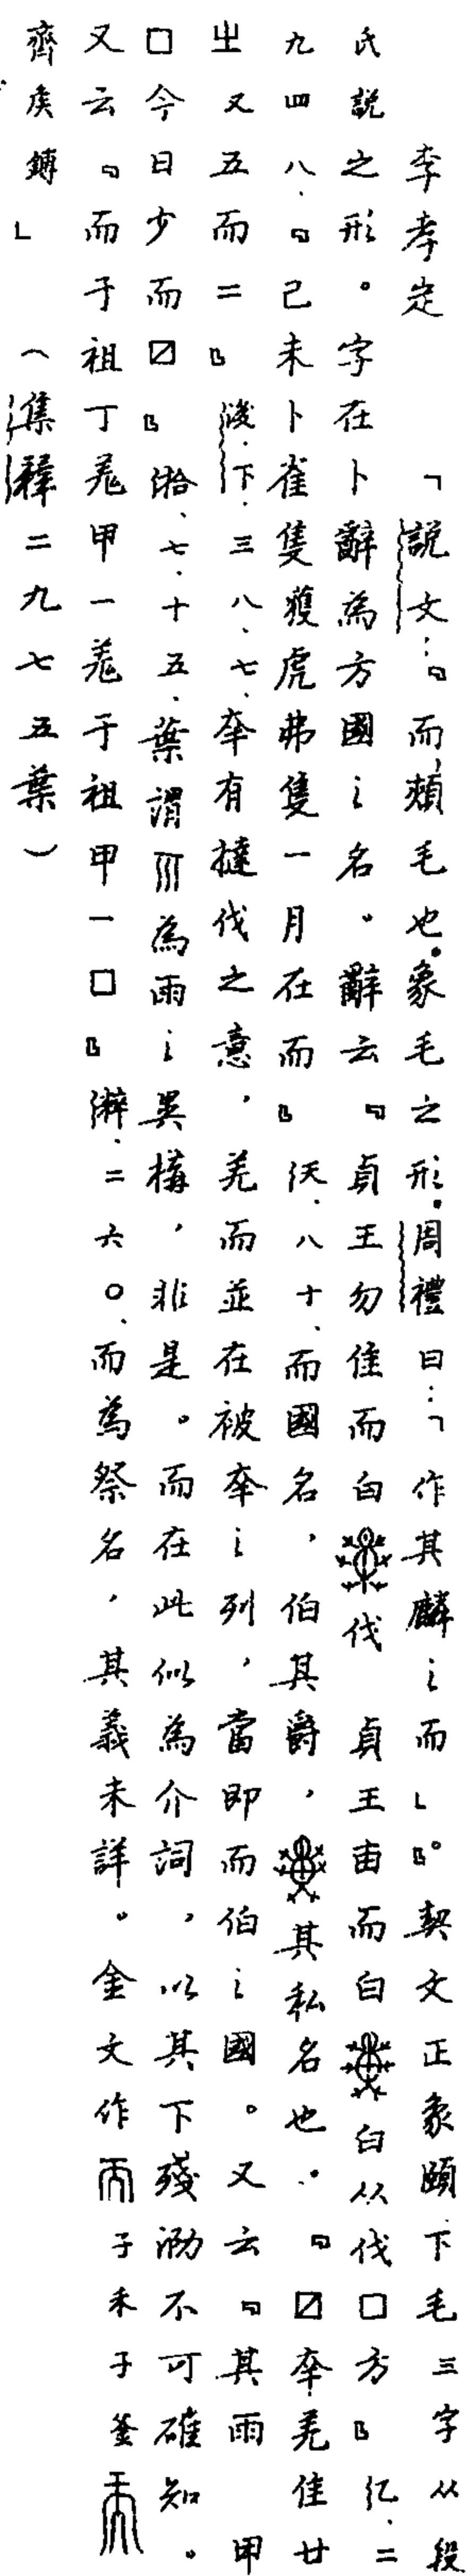 李孝定　「説文：『而，頰毛也。象毛之形。周禮曰：「作其鱗之而」』。契文正象頤下毛三字从段
氏説之形。字在卜辭為方國之名。辭云『貞王勿隹而白伐　貞王叀而白白从伐□方』乙、二
九四八、『己未卜雀隻獲虎弗隻一月在而』佚、八十、而國名，伯其爵，其私名也。『〼㚔羌隹廿
㞢又五而二』後、下、三八、七、㚔有撻伐之意，羌而並在被㚔之列，當即而伯之國。又云『其雨　甲
□今日少而〼』七、十五、葉謂為雨之異構，非是。而在此似為介詞，以其下殘泐不可確知。
又云『而于祖丁羌甲一羌于祖甲一□』二六〇、而為祭名，其義未詳。金文作子禾子釜
齊侯鎛」　（集釋二九七五葉）